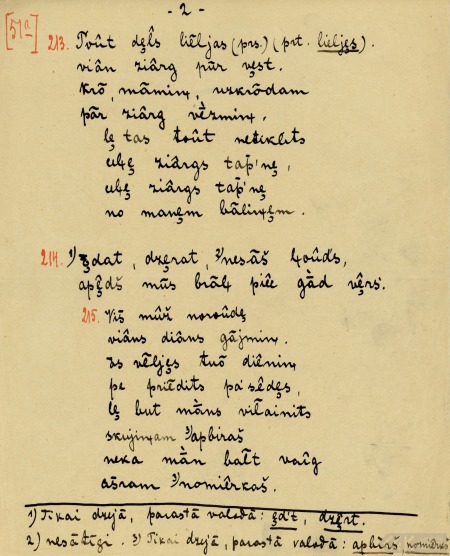 - 2 -
[51a]
213. Toût dęl̂s liêljas (prs.) (prt. lieljęs).
viân ziârg pūr vęst.
krō, māmiņ, uzkrōdam
pār ziârg vēzmiņ,
lę tas toût netiklits
ziârgs tap̄'nę,
ziârgs tap̄'nę
no manęm bāliņęm.
214. 1) Ȩdat, dzęrat, 2) nesāš ļoûds,
apę̂dš mūs brāļ piêe gàd vêrs.
215. Viš mûž noroûdę
viâns diâns gājmiņ.
Es vēļjes tuō diêniņ
pe priêdits pa sêdęs,
lę but màns vilainits
skujiņam 3) apbiraš
neka màn balt vaîg
ašram 3) nomiêrkaš.
1) Tikai dzejā, parastā valodā: ęd't, dzęrt.
2) nesātīgi. 3) Tikai dzejā, parastā valodā: apbirš nomiêrkš